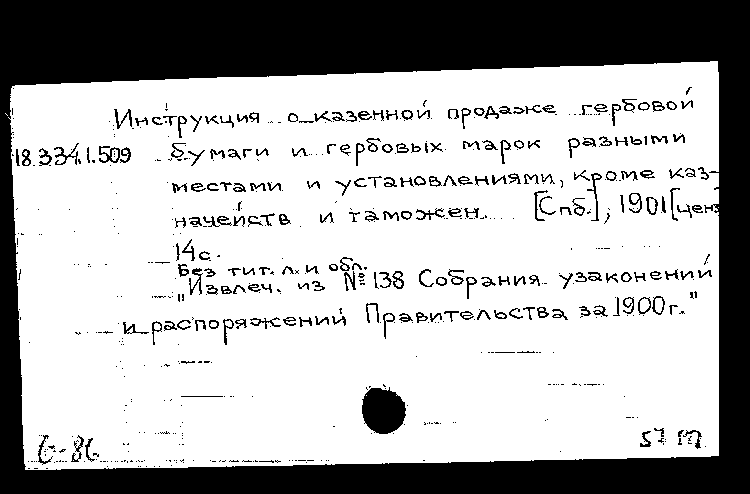 Инструкция о казенной продаже гербовой
18.334.1.509 бумаги и гербовых марок разными
местами и установлениями, кроме каз-
начейств и таможен. [Спб.], 1901 [ценз
14с.
Без тит. л. и обл.
"Извлеч. из № 138 Собрания узаконений
и распоряжений Правительства за 1900г."
6-86 57 m